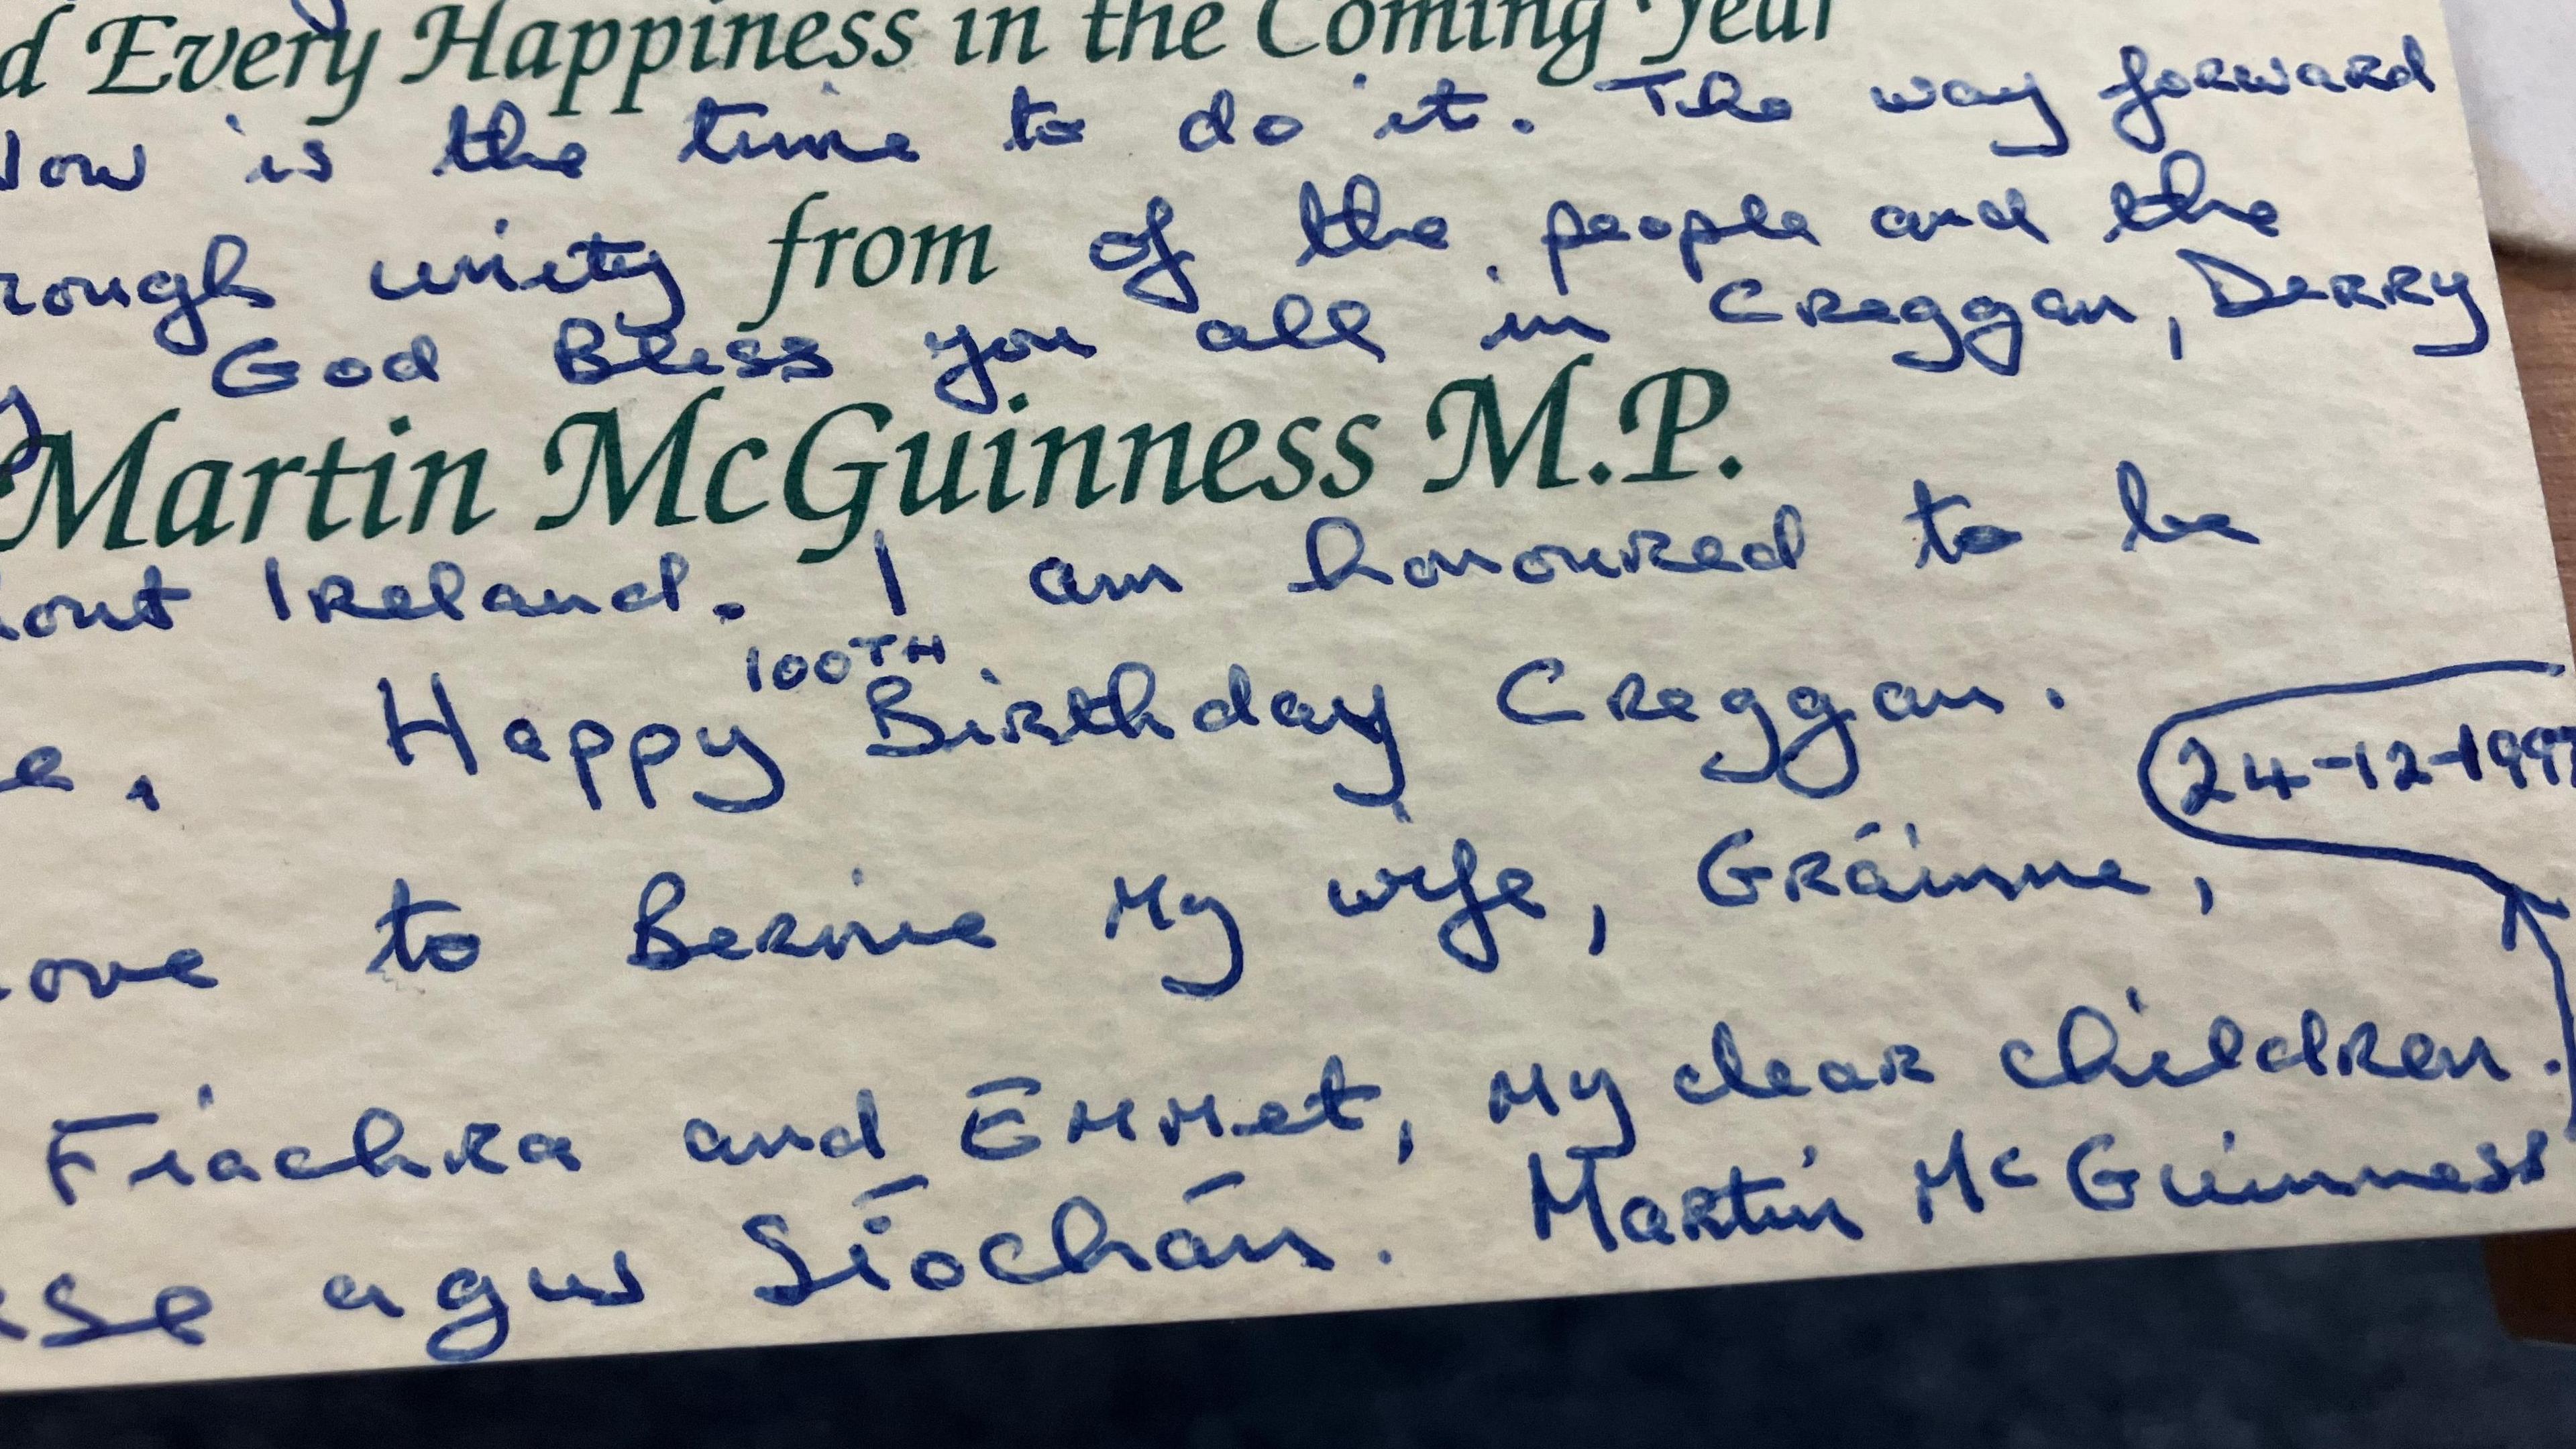 d Every Happiness in the Coming Year
Now is the time to do it. The way forward
rough unity from of the people and the
God Bless you all in Creggan, Derry
Martin McGuinness M.P.
out Ireland. I am honoured to be
100TH
e, Happy Birthday Creggan.
24-12-1997
ove to Bernie my wife, Gráinne,
Fiachra and Emmet, my dear children.
se agus Síochán. Martin McGuinness